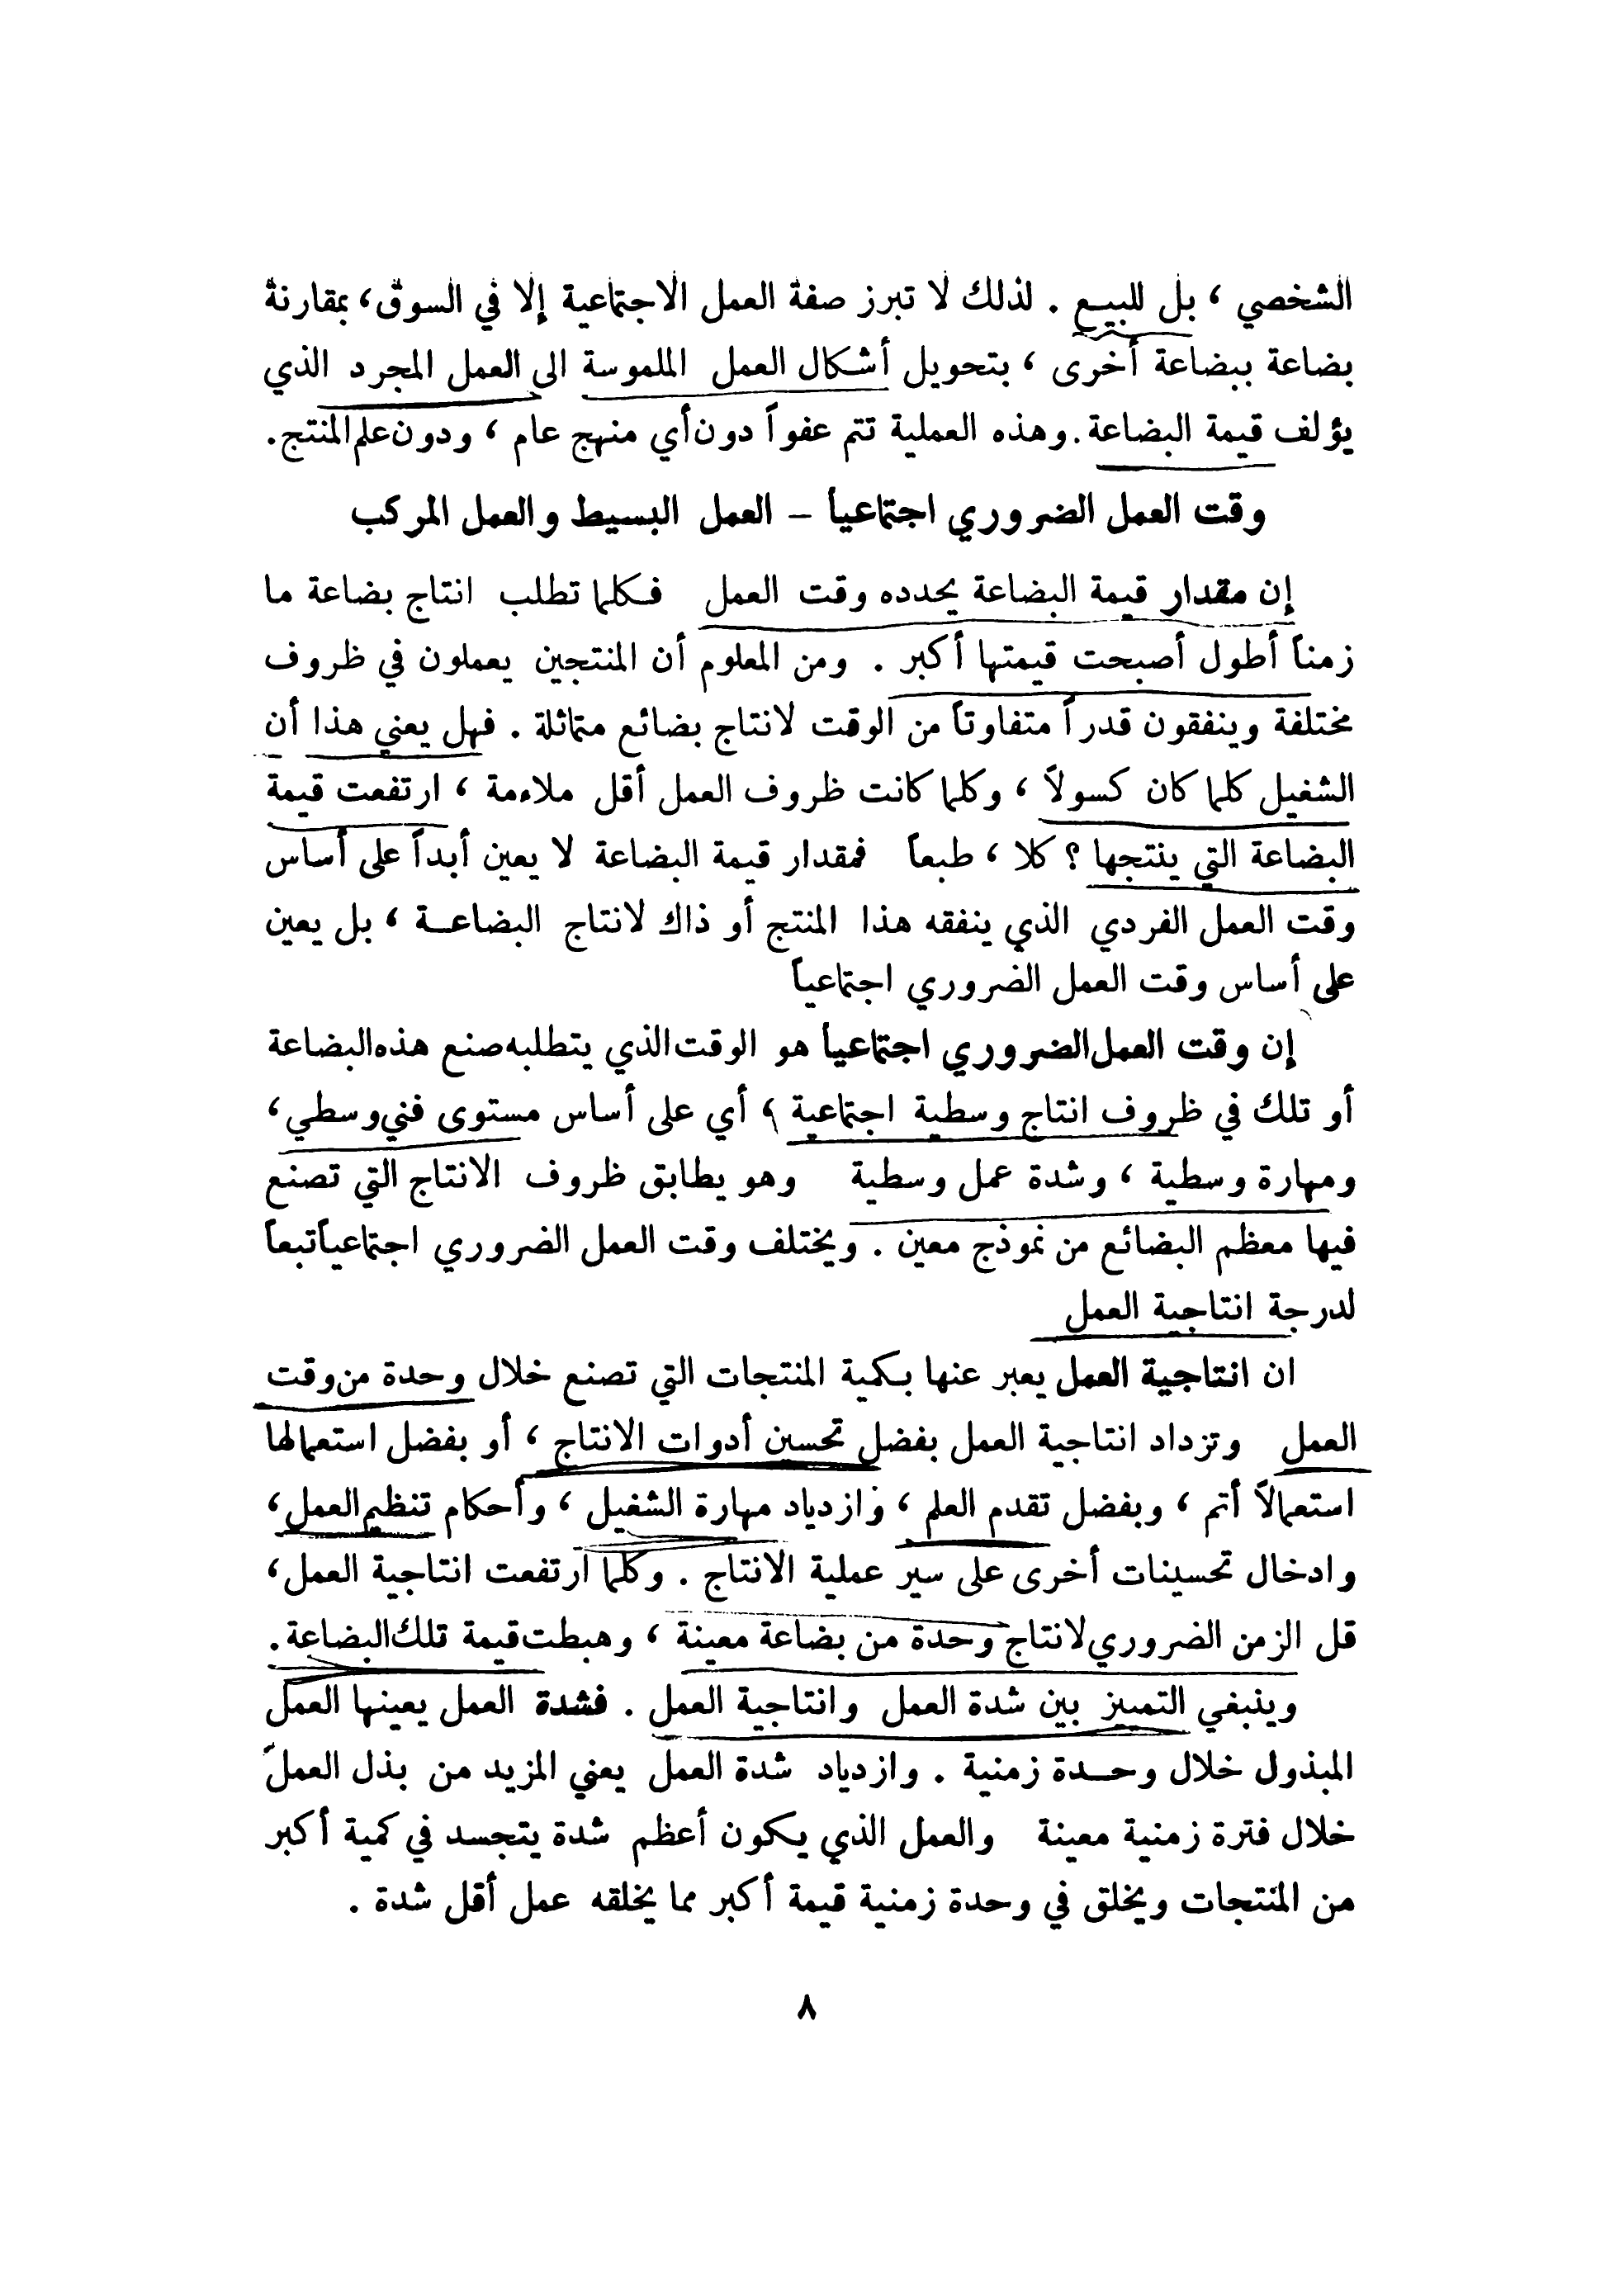 الشخصي ، بل للبيع . لذلك لا تبرز صفة العمل الاجتماعية إلا في السوق، بمقارنة
بضاعة ببضاعة أخرى ، بتحويل أشكال العمل الملموسة الى العمل المجرد الذي
يؤلف قيمة البضاعة. وهذه العملية تتم عفواً دون أي منهج عام ، ودون علم المنتج.
وقت العمل الضروري اجتماعياً – العمل البسيط والعمل المركب
إن مقدار قيمة البضاعة يحدده وقت العمل فكلما تطلب انتاج بضاعة ما
زمناً أطول أصبحت قيمتها أكبر . ومن المعلوم أن المنتجين يعملون في ظروف
مختلفة وينفقون قدراً متفاوتاً من الوقت لانتاج بضائع متماثلة . فهل يعني هذا أن
الشغيل كلما كان كسولاً ، وكلما كانت ظروف العمل أقل ملاءمة ، ارتفعت قيمة
البضاعة التي ينتجها ؟ كلا ، طبعاً فمقدار قيمة البضاعة لا يعين أبداً على أساس
وقت العمل الفردي الذي ينفقه هذا المنتج أو ذاك لانتاج البضاعـة ، بل يعين
على أساس وقت العمل الضروري اجتماعياً
إن وقت العمل الضروري اجتماعياً هو الوقت الذي يتطلبه صنع هذه البضاعة
أو تلك في ظروف انتاج وسطية اجتماعية ، أي على أساس مستوى فني وسطي ،
ومهارة وسطية ، وشدة عمل وسطية وهو يطابق ظروف الانتاج التي تصنع
فيها معظم البضائع من نموذج معين . ويختلف وقت العمل الضروري اجتماعياً تبعاً
لدرجة انتاجية العمل
ان انتاجية العمل يعبر عنها بكمية المنتجات التي تصنع خلال وحدة من وقت
العمل وتزداد انتاجية العمل بفضل تحسين أدوات الانتاج ، أو بفضل استعمالها
استعمالاً أتم ، وبفضل تقدم العلم ، وازدياد مهارة الشغيل ، وأحكام تنظيم العمل ،
وادخال تحسينات أخرى على سير عملية الانتاج . وكلما ارتفعت انتاجية العمل ،
قل الزمن الضروري لانتاج وحدة من بضاعة معينة ، وهبطت قيمة تلك البضاعة .
وينبغي التمييز بين شدة العمل وانتاجية العمل . فشدة العمل يعينها العمل
المبذول خلال وحـدة زمنية . وازدياد شدة العمل يعني المزيد من بذل العمل
خلال فترة زمنية معينة والعمل الذي يكون أعظم شدة يتجسد في كمية أكبر
من المنتجات ويخلق في وحدة زمنية قيمة أكبر مما يخلقه عمل أقل شدة .
٨